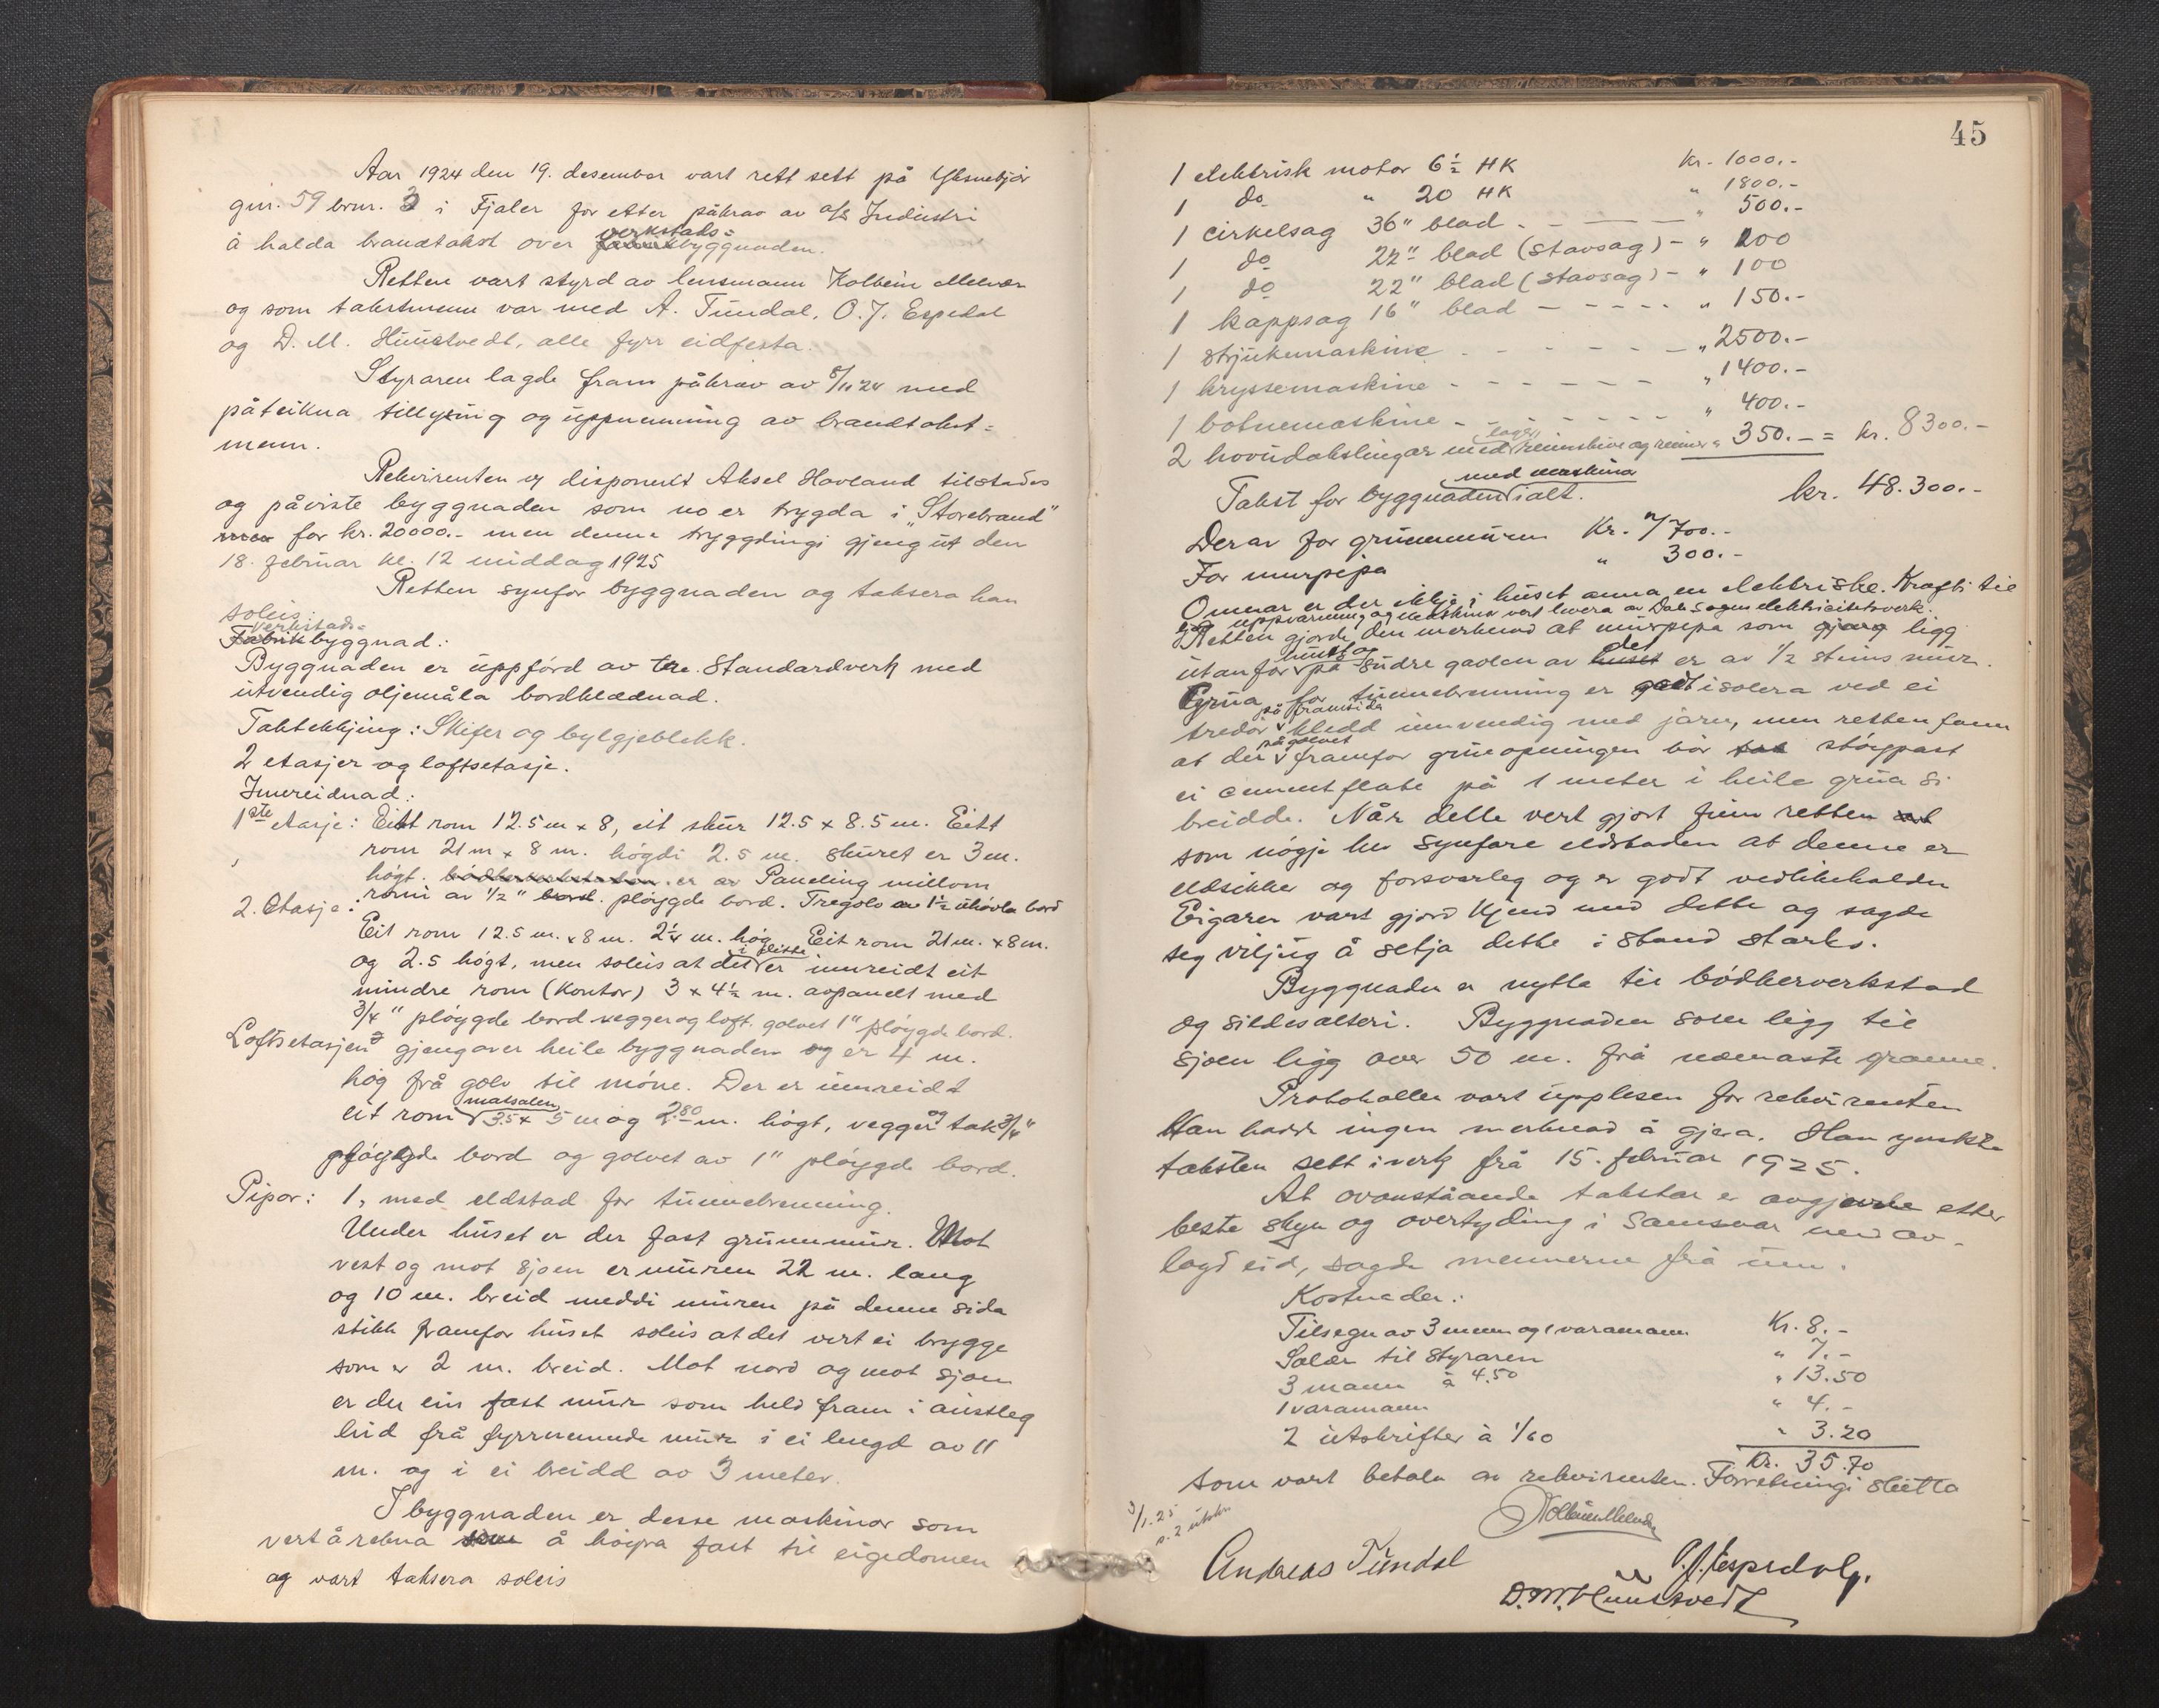 Aar 1924 den 19. desember vart rett sett på Yksnebjór
gnr. 59 brnr. 3 i Fjaler for etter påkrav av a/s Industri
å halda brandtakst over fabrikk verkstads= byggnaden.
Retten vart styrd av lensmann Kolbein Melvær
og som takstmenn var med A. Túndal, O. J. Espedal
og D. M. Húústvedt, alle fyrr eidfesta.
Styraren lagde fram påkrav av 8/11 24 med
påteikna tillysing og uppnemning av brandtakst=
menn.
Rekvirenten ved disponent Aksel Havland tilstades
og påviste byggnaden som no er trygda i „Storebrand"
for kr. 20000.- men denne tryggdingi gjeng út den
18. februar kl. 12 middag 1925
Retten synfor byggnaden og taksera han
soleis:
Fabrik verkstads= byggnad:
Byggnaden er úppfórd av tre. Standardverk med
útvendig oljemåla bordklædnad.
Taktekkjing: Skifer og bylgjeblekk.
2 etasjer og loftsetasje.
Innreidnad:
1ste etasje: Eitt rom 12.5 m x 8, eit skúr 12.5 x 8.5 m. Eitt
rom 21 m x 8 m. högdi 2.5 m. Skúret er 3 m.
högt. bódkerverkstaden er av Paneling millom
romi av 1/2" bord. plöygde bord. Tregolv av 1½ úhövla bord
2. Etasje:
Eit rom 12.5 m. x 8 m. 2¼ m. hög Eit rom 21 m. x 8 m.
og 2.5 högt, men soleis at det i dette er innreidt eit
mindre rom (Kontor) 3 x 4½ m. avpanelt med
3/4" plöygde bord vegger og loft. golvet 1" plöygde bord.
Loftsetasjen gjeng over heile byggnaden og er 4 m.
hög frå golv til möne. Der er innreidt
eit rom matsalen 3.5 x 5 m og 2.80 m. högt, vegger og tak 3/4"
plöygde bord og golvet av 1" plöygde bord.
Pipor: 1, med eldstad for túnnebrenning.
Under húset er der fast grúnnmúr. Mot
vest og mot sjoen er múren 22 m. lang
og 10 m. breid meddi múren på denne sida
stikk framfor húset soleis at det vert ei brygge
som er 2 m. breid. Mot nord og mot sjoen
er der ein fast múr som held fram i aústleg
leid frå fyrrnemnde múr i ei lengd av 11
m. og i ei breidd av 3 meter.
I byggnaden er desse maskinor som
vert å rekna som å höyra fast til eigedomen
og vart taksera soleis
45
1 elektrisk motor 6½ HK kr. 1000.-
1 do " 20 HK " 1800.-
1 cirkelsag 36" blad - " 500.-
1 do 24" blad (stavsag) - " 200
1 do 22" blad (stavsag) - " 100
1 kappsag 16" blad - - - - " 150.-
1 strjúkemaskine - - - - - " 2500.-
1 kryssemaskine - - - - - - " 1400.-
1 botnemaskine - - - - - - " 400.-
2 hovúdakslingar med lager, reimskive og reimer " 350.- = kr. 8300.-
Takst for byggnaden med maskina ialt. kr. 48.300.-
Derav for grúnnmúren Kr. 7700.-
For murpipa " 300.-
Omnar er der ikkje i húset anna en elektriske. Kraft til
uppvarming og maskiner vert levera av Dale Sogns elektricitetsverk.
Retten gjorde den merknad at múrpipa som gjeng ligg
útanfor húset og på súdre gavlen av húset det er av 1/2 steins múr.
Grúa for túnnebrenning er godt isolera ved ei
tredör på framsida kledd innvendig med jarn, men retten fann
at der på golvet framfor grúeopningen bör stöypast
ei cementflate på 1 meter i heile grúa si
breidde. Når dette vert gjort finn retten
som nögje hev synfare eldstaden at denne er
eldsikker og forsvarleg og er godt vedlikehalden
Eigaren vart gjord kjend med dette og sagde
seg viljúg å setja dette i stand straks.
Byggnaden er nytta til bödkerverkstad
og sildesalteri. Byggnaden som ligg til
sjoen ligg over 50 m. frå næmaste granne.
Protokollen vart úpplesen for rekvirenten
Han hadde ingen merknad å gjera. Han ynskte
taksten sett i verk frå 15. februar 1925.
At ovanståande takstar er avgjevne etter
beste skyn og overtyding i samsvar med av-
lagd eid, sagde mennerne frå um.
Kostnader:
Tilsegn av 3 menn og 1 varamann Kr. 8.-
Salær til styraren " 7.-
3 mann à 4.50 " 13.50
1 varamann " 4.-
2 útskrifter à 1/60 " 3.20
Kr. 35.70
som vart betala av rekvirenten. Forretningi slútta
3/1. 25
p. 2 útskr.
Kolbein Melvær
Andreas Túndal O. J. Espedal.
D. M. Húústvedt